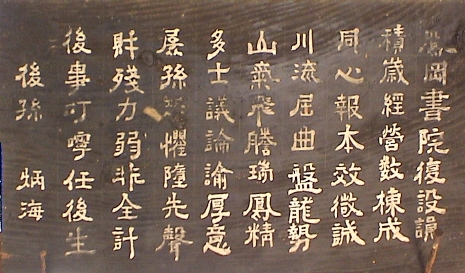 岡書院復設韻
積歲經營數棟成
同心報本效微誠
川流屈曲盤龍勢
山氣飛騰瑞鳳精
多士議論諭厚意
孱孫懼墮先聲
財殘力弱非全計
後事叮寧任後生
後孫 炳海